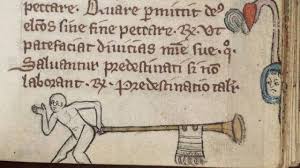 peccare. D. Quare permittit deꝰ
elc̄os sine fine peccare. ℞. Ut
patefaciat diuitias mīe sue. q̇.
Saluantur predestinati si non
laborant. ℞. Predestinatio tali